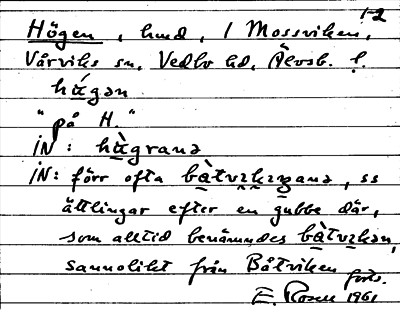 1-2
Högen, hmd, i Mossviken,
Vårviks sn, Vedbo hd, Älvsb. l.
hú̱gən
"på H."
iN: hù̱grana
iN: förr ofta bà̱tvɪkɪŋana, ss
ättlingar efter en gubbe där,
som alltid benämndes bà̱tvɪkən,
sannolikt från Båtviken
forts.
E. Rosell 1961